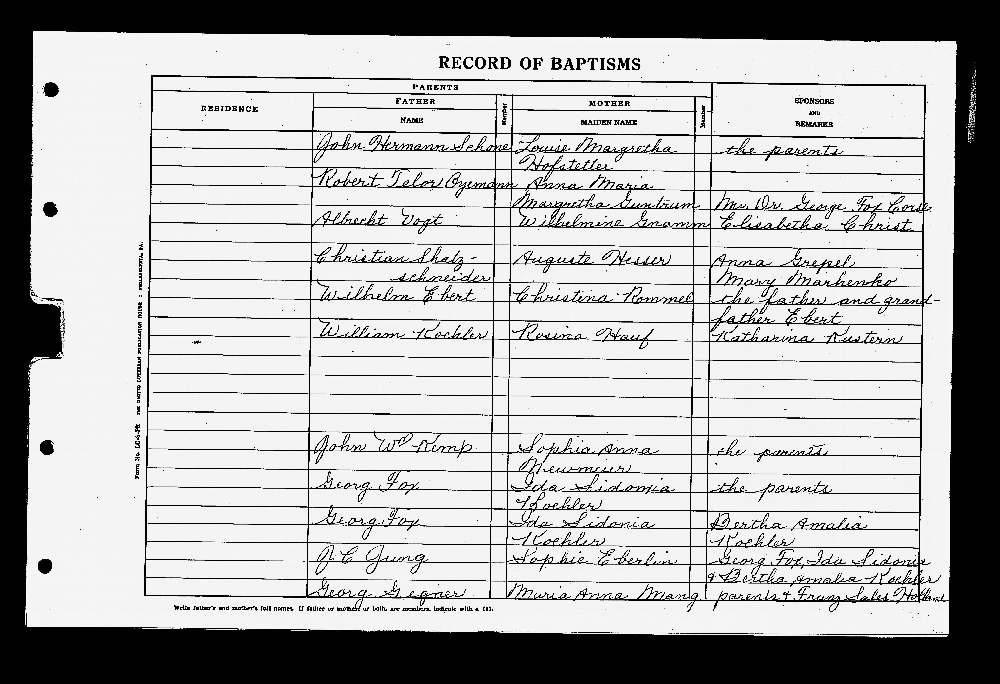 RECORD OF BAPTISMS
PARENTS
RESIDENCE
FATHER
Member
MOTHER
Member
SPONSORS
AND
REMARKS
NAME
MAIDEN NAME
John Hermann Schone Louise Margretha the parents
Hofstetter
Robert Telor Byemann Anna Maria
Margretha Guntrum Mr. Dr. George Fox Corse
Albrecht Vogt Wilhelmine Genamm Elisabetha Christ
Christian Shatz- Auguste Hesser Anna Grepel
schneider Mary Marhenko
Wilhelm Ebert Christina Rommel the father and grand-
father Ebert
William Koehler Rosina Hauf Katharina Kustern
John Wm Kemp Sophia Anna the parents
Newmeier
Georg Fox Ida Sidonia the parents
Koehler
Georg Fox Ida Sidonia Bertha Amalia
Koehler Koehler
J C Gung Sophie Eberlin Georg Fox, Ida Sidonia
& Bertha Amalea Koehler
Georg Gegner Maria Anna Mang parents & Franz Sales Holland
Write father's and mother's full names. If father or mother or both, are members, indicate with a (X).
Form No. LS-4-PR THE UNITED LUTHERAN PUBLICATION HOUSE : PHILADELPHIA, PA.